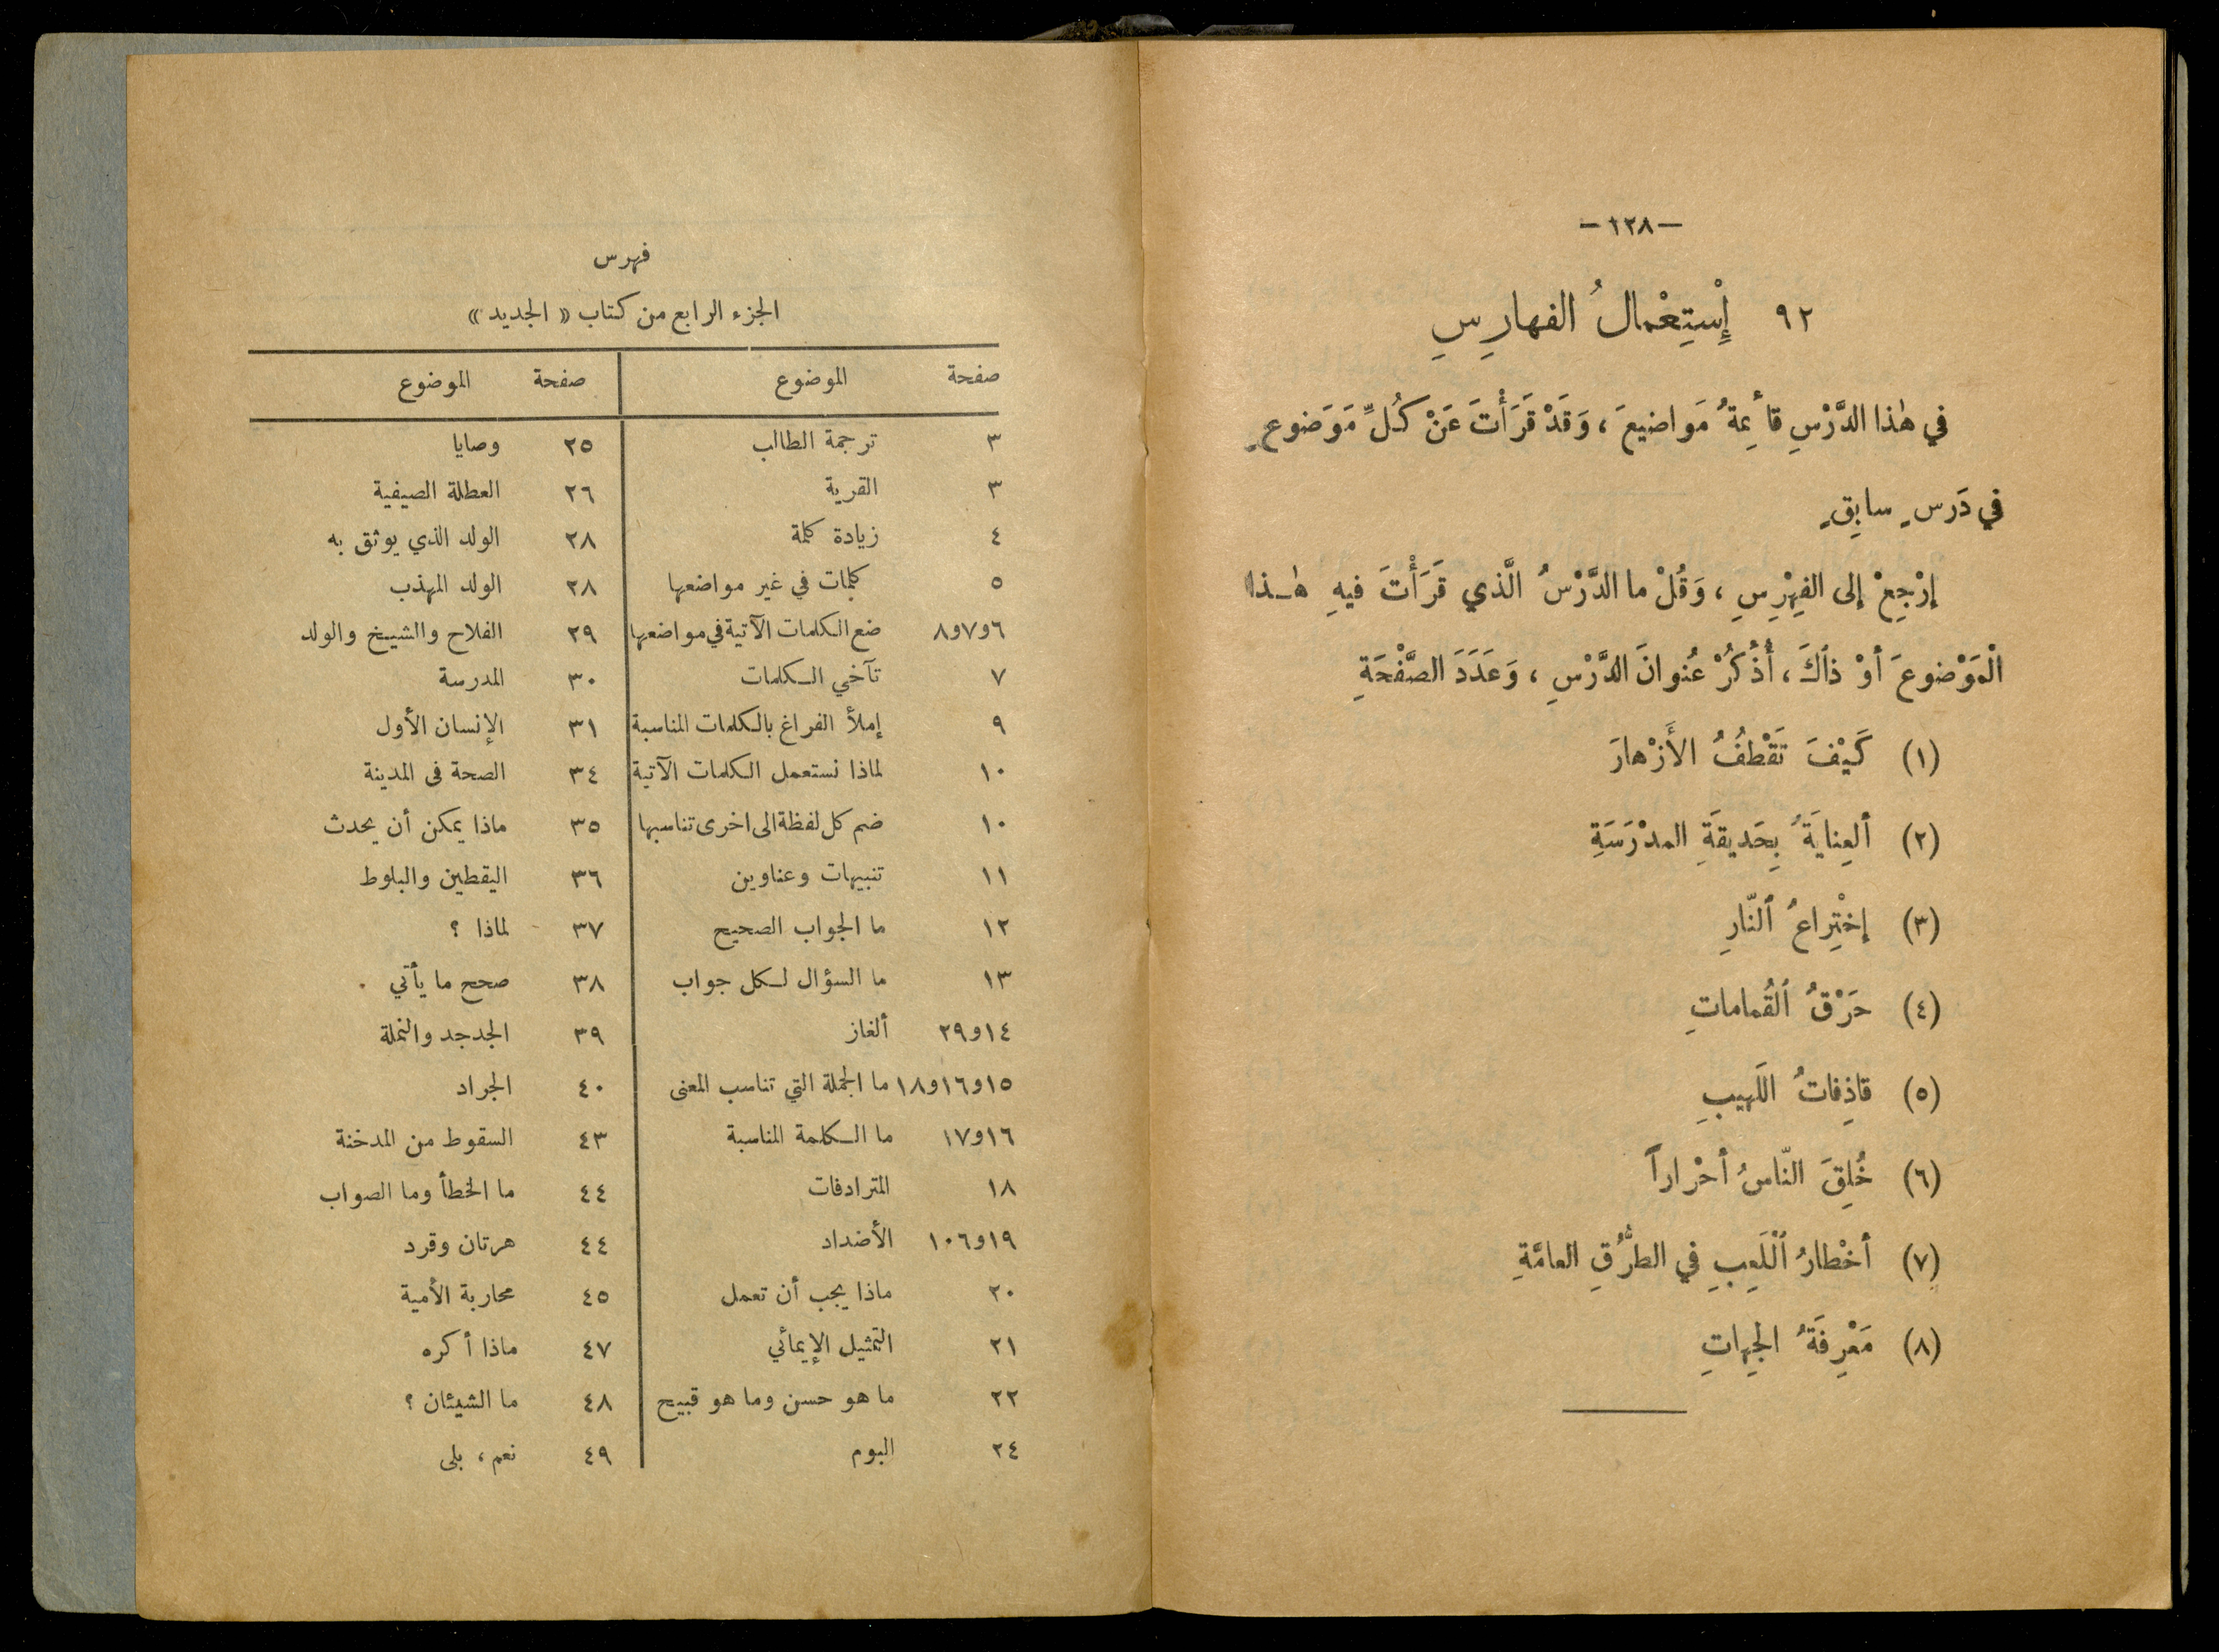 —١٢٨—
٩٢ إِسْتِعْمالُ الفهارِسِ
في هٰذا الدَّرْسِ قائِمةُ مَواضيعَ ، وَقَدْ قَرَأْتَ عَنْ كُلِّ مَوَضوعٍ
في دَرسٍ سابِقٍ
إرْجِعْ إلى الفِهْرِسِ ، وَقُلْ ما الدَّرْسُ الَّذي قَرَأْتَ فيهِ هٰذا
الْمَوْضوعَ أوْ ذٱكَ ، أُذْكُرْ عُنوانَ الدَّرْسِ ، وَعَدَدَ الصَّفْحَةِ
(١) كَيْفَ تَقْطفُ الأَزْهارَ
(٢) ألعِنايَةُ بِحَديقَةِ المدْرَسَةِ
(٣) إخْتِراعُ ٱلنّارِ
(٤) حَرْقُ ٱلقُماماتِ
(٥) قاذِفاتُ اللَهيبِ
(٦) خُلِقَ النّاسُ أحْراراً
(٧) أخْطارُ ٱلْلَعِبِ في الطُّرُقِ العامَّةِ
(٨) مَعْرِفَةُ الجِهاتِ
فهرس
الجزء الرابع من كتاب « الجديد »
صفحة الموضوع صفحة الموضوع
٣ ترجمة الطالب ٢٥ وصايا
٣ القرية ٢٦ العطلة الصيفية
٤ زيادة كلمة ٢٨ الولد الذي يوثق به
٥ كلمات في غير مواضعها ٢٨ الولد المهذب
٦و٧و٨ ضع الكلمات الآتية في مواضعها ٢٩ الفلاح والشيخ والولد
٧ تآخي الكلمات ٣٠ المدرسة
٩ إملأ الفراغ بالكلمات المناسبة ٣١ الإنسان الأول
١٠ لماذا نستعمل الكلمات الآتية ٣٤ الصحة فى المدينة
١٠ ضم كل لفظة الى اخرى تناسبها ٣٥ ماذا يمكن أن يحدث
١١ تنبيهات وعناوين ٣٦ اليقطين والبلوط
١٢ ما الجواب الصحيح ٣٧ لماذا ؟
١٣ ما السؤال لكل جواب ٣٨ صحح ما يأتي
١٤و٢٩ ألغاز ٣٩ الجدجد والنملة
١٥و١٦و١٨ ما الجملة التي تناسب المعنى ٤٠ الجراد
١٦و١٧ ما الكلمة المناسبة ٤٣ السقوط من المدخنة
١٨ المترادفات ٤٤ ما الخطأ وما الصواب
١٩و١٠٦ الأضداد ٤٤ هرتان وقرد
٢٠ ماذا يجب أن تعمل ٤٥ محاربة الأمية
٢١ التمثيل الإيمائي ٤٧ ماذا أكره
٢٢ ما هو حسن وما هو قبيح ٤٨ ما الشيئان ؟
٢٤ البوم ٤٩ نعم ، بلى